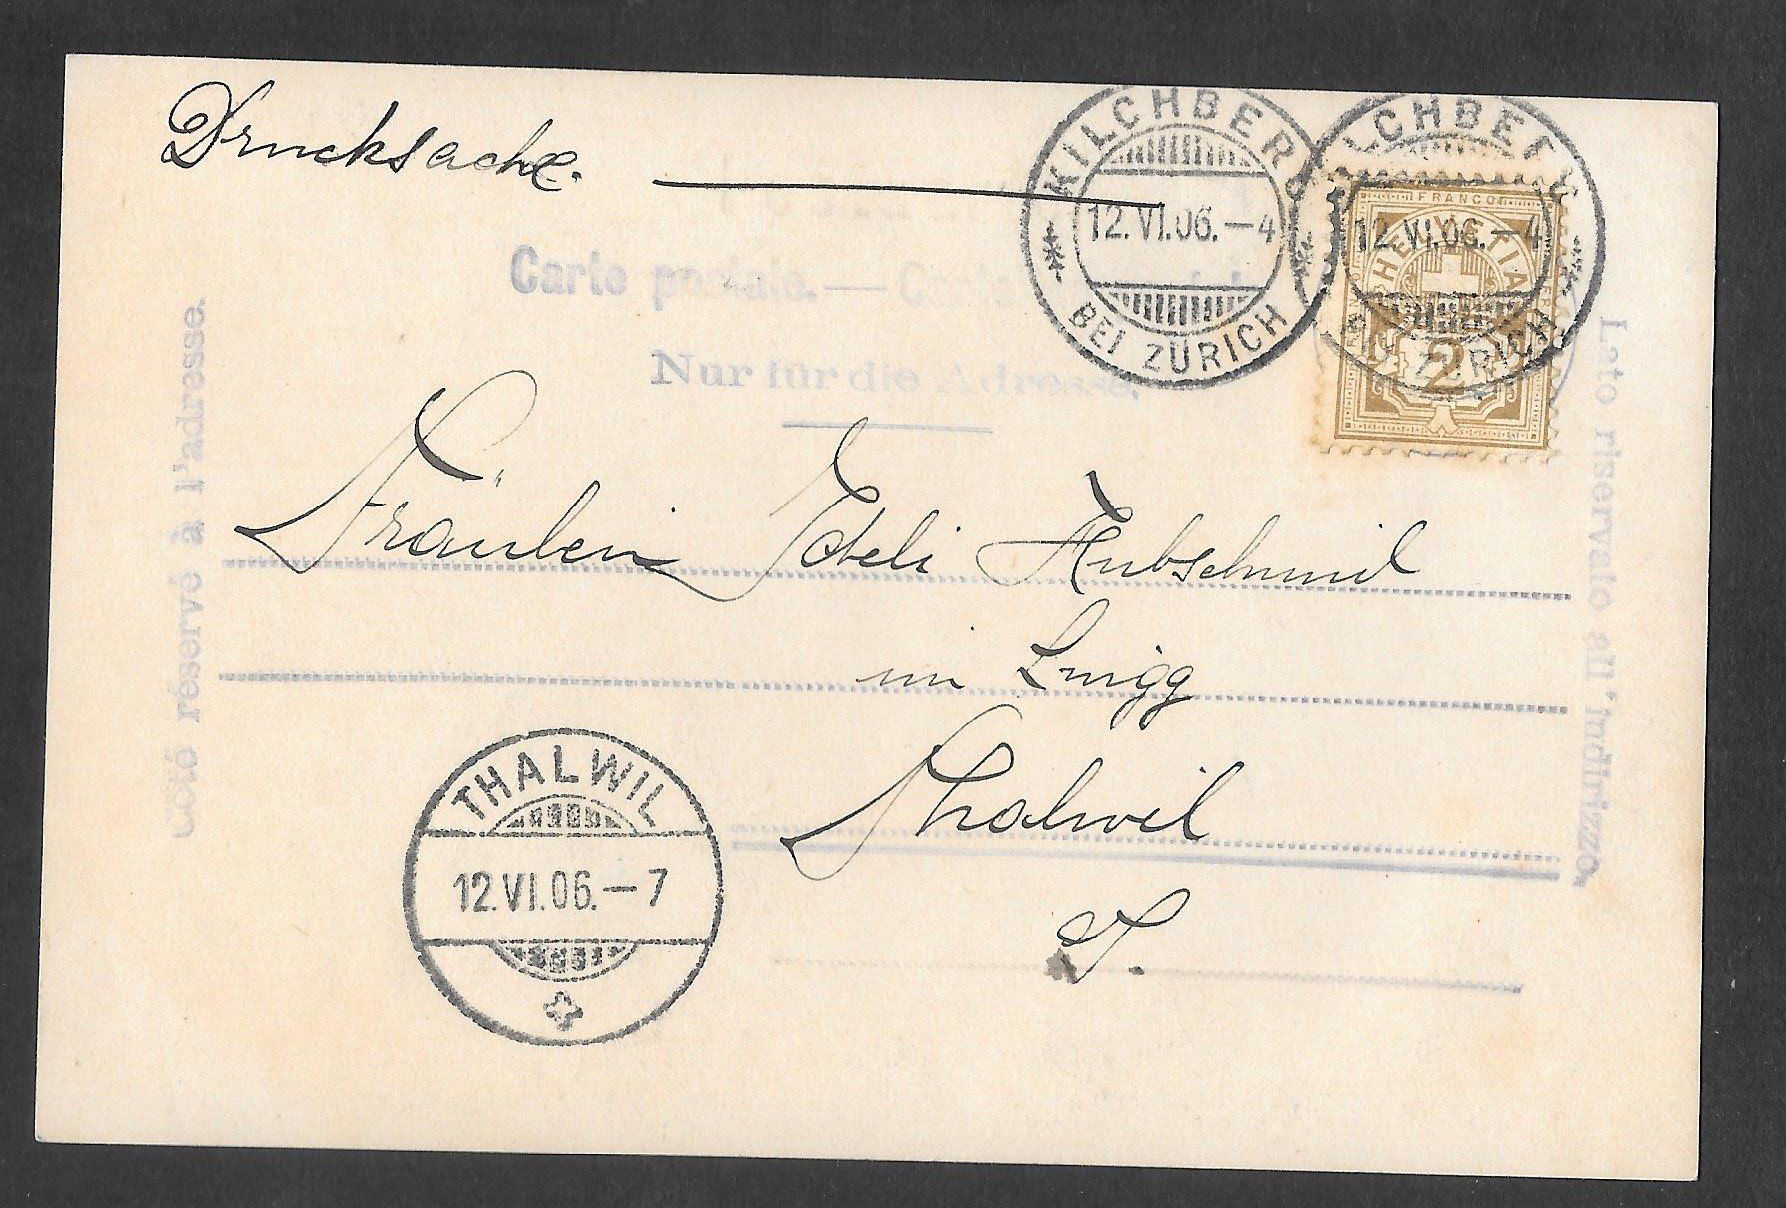 Drucksache.
KILCHBERG
12.VI.06.–4
BEI ZÜRICH
KILCHBERG
12.VI.06.–4
BEI ZÜRICH
FRANCO
HELVETIA
2
Carte postale. —
Nur für die Adresse.
Côté réservé à l'adresse.
Lato riservato all'indirizzo.
Fräulein Hubschmid
im
Thalwil
THALWIL
12.VI.06.–7